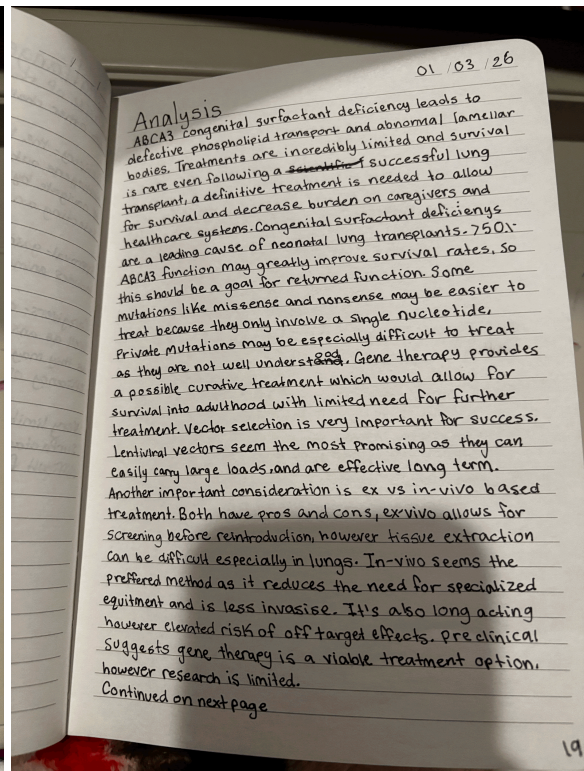 01 / 03 / 26
Analysis
ABCA3 congenital surfactant deficiency leads to
defective phospholipid transport and abnormal lamellar
bodies. Treatments are incredibly limited and survival
is rare even following a successful lung
transplant, a definitive treatment is needed to allow
for survival and decrease burden on caregivers and
healthcare systems. Congenital surfactant deficienys
are a leading cause of neonatal lung transplants. >50%
ABCA3 function may greatly improve survival rates, so
this should be a goal for returned function. Some
mutations like missense and nonsense may be easier to
treat because they only involve a single nucleotide,
Private mutations may be especially difficult to treat
as they are not well understood. Gene therapy provides
a possible curative treatment which would allow for
survival into adulthood with limited need for further
treatment. Vector selection is very important for success.
Lentiviral vectors seem the most promising as they can
easily carry large loads, and are effective long term.
Another important consideration is ex vs in-vivo based
treatment. Both have pros and cons, ex-vivo allows for
screening before reintroduction, however tissue extraction
can be difficult especially in lungs. In-vivo seems the
preffered method as it reduces the need for specialized
equitment and is less invasise. It's also long acting
however elevated risk of off target effects. Pre clinical
suggests gene therapy is a viable treatment option,
however research is limited.
Continued on next page
19